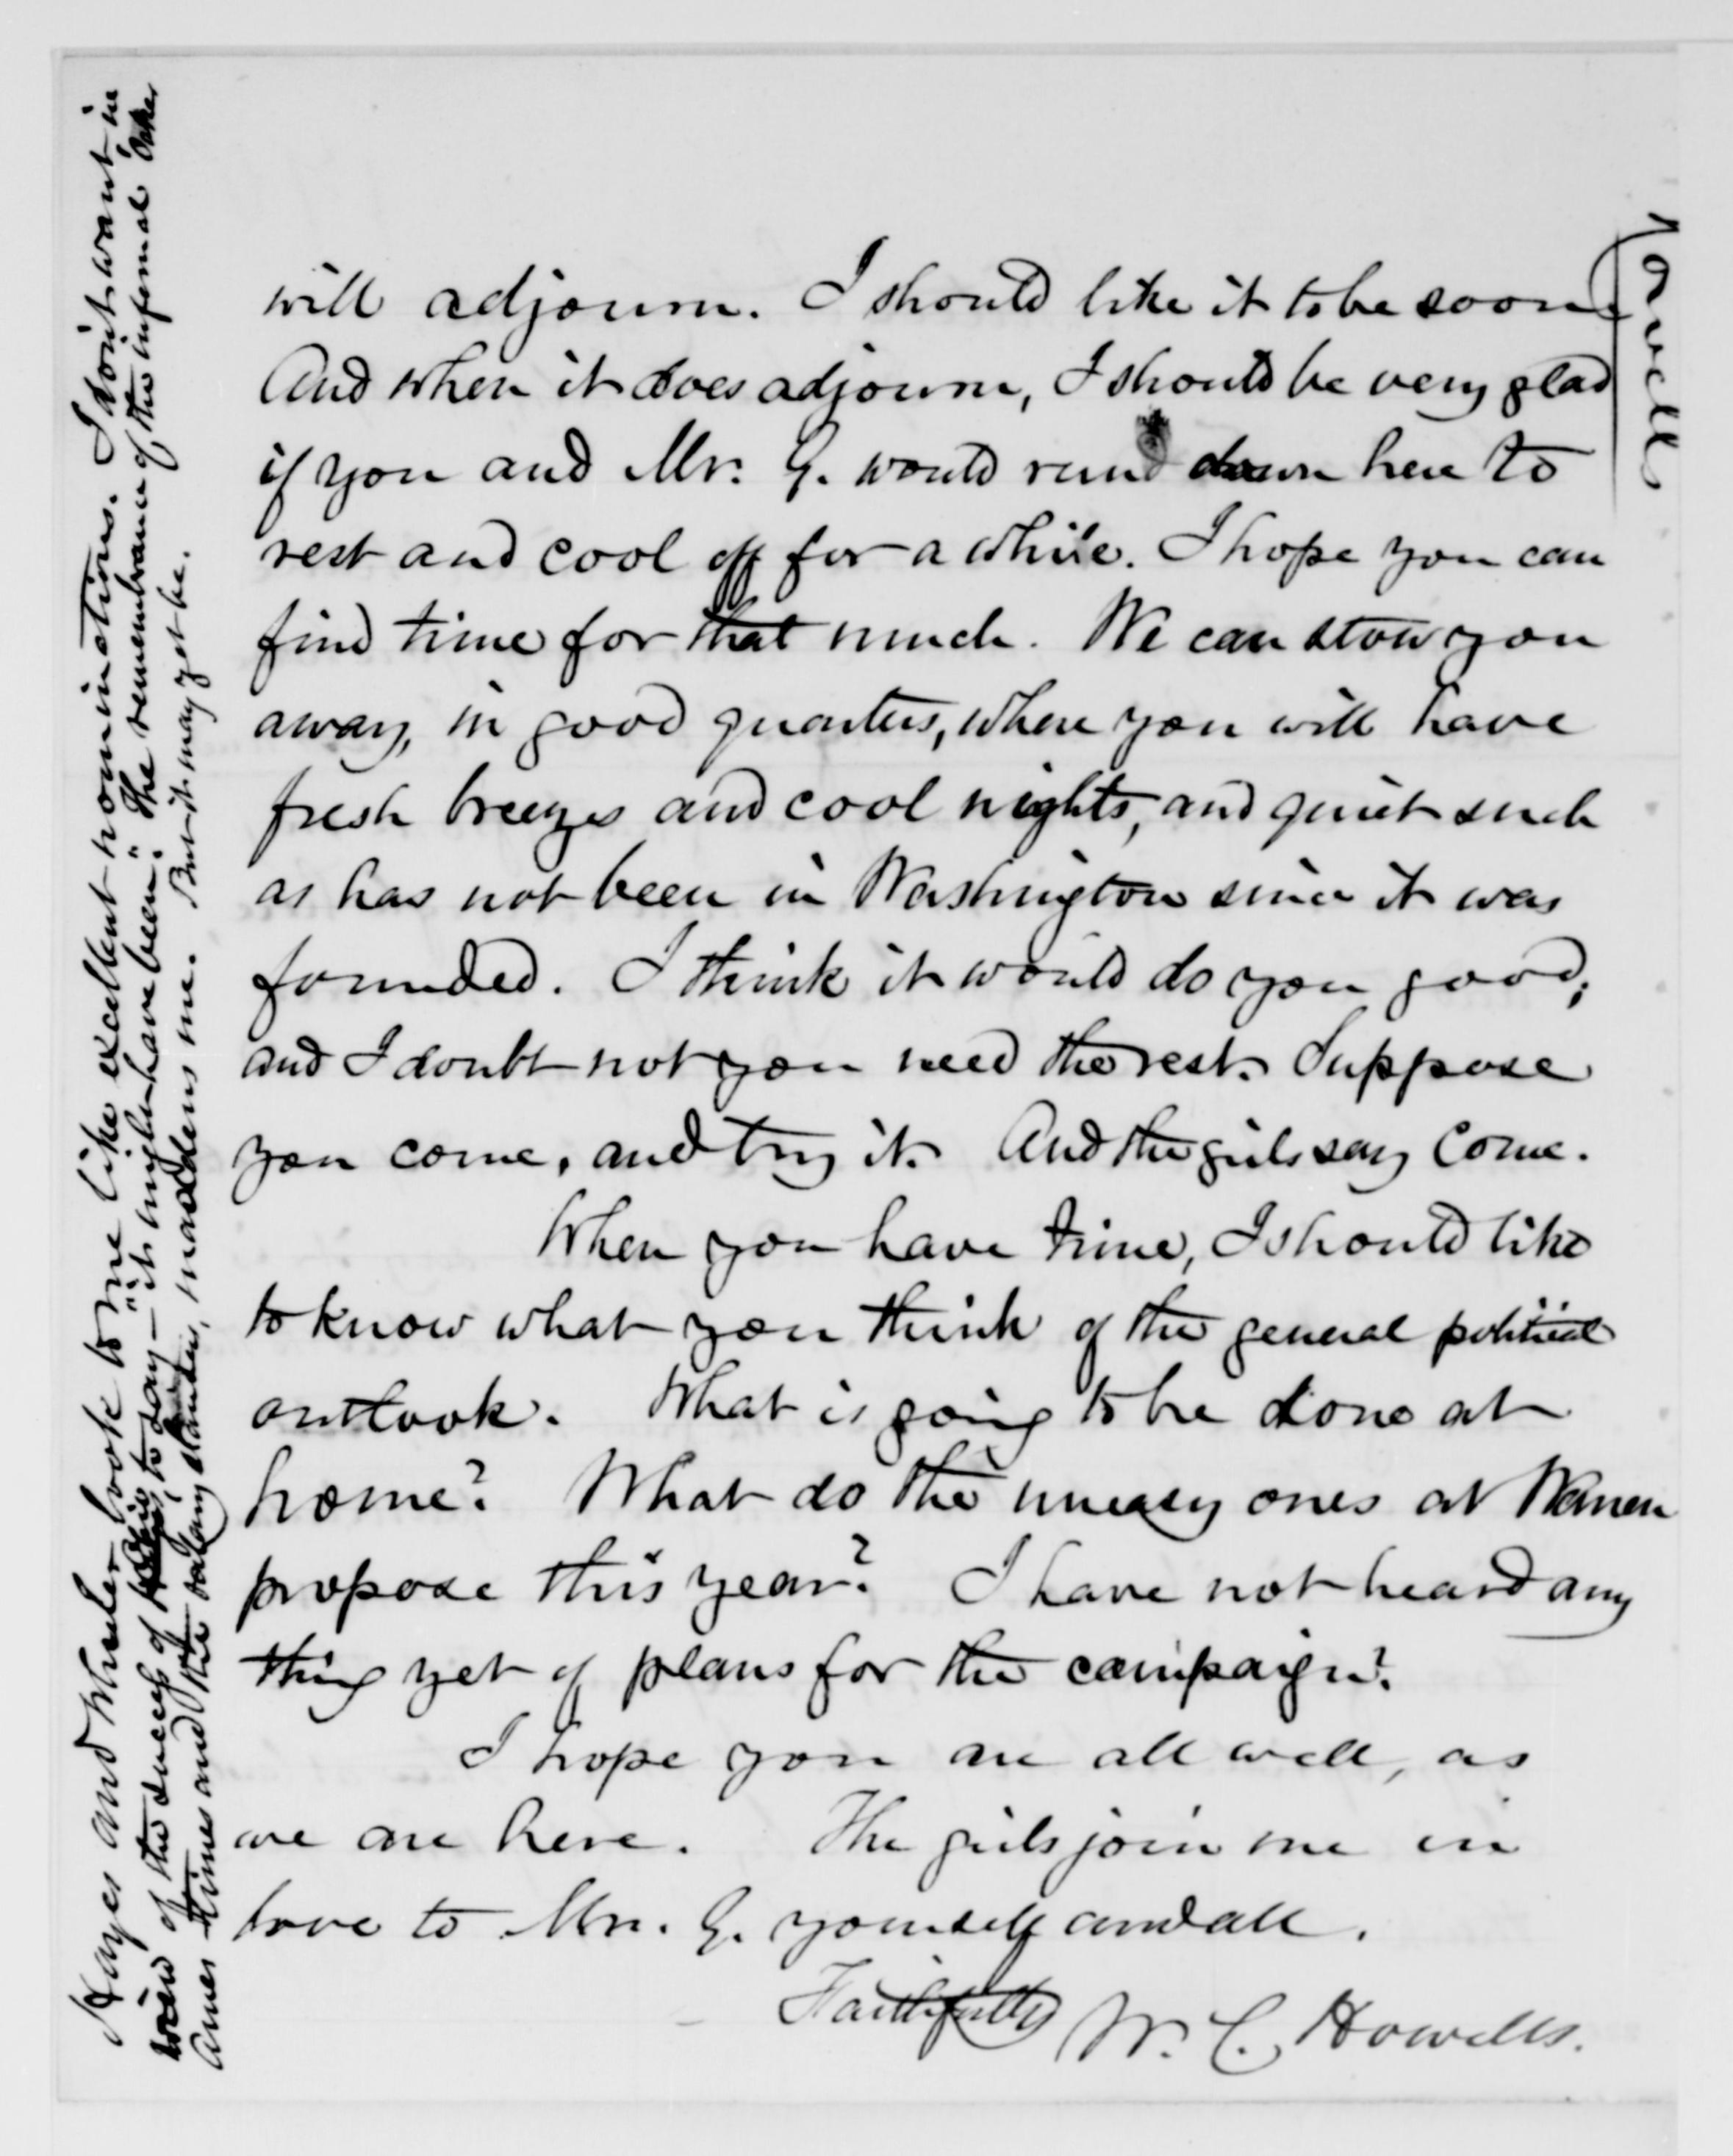 will adjourn. I should like it to be soon.
And when it does adjourn, I should be very glad
if you and Mr. G. would run down here to
rest and cool off for a while. I hope you can
find time for that much. We can stow you
away, in good quarters, where you will have
fresh breezes and cool nights, and quiet such
as has not been in Washington since it was
founded. I think it would do you good;
and I doubt not you need the rest. Suppose
you come, and try it. And the girls say Come.
When you have time, I should like
to know what you think of the general political
outlook. What is going to be done at
home? What do the uneasy ones at Warren
propose this year? I have not heard any
thing yet of plans for the campaign?
I hope you are all well, as
we are here. The girls join me in
love to Mrs. G. yourself and all.
Faithfully W. C. Howells.
Hayes and Wheeler look to me like excellent nominations. I don't want in
view of the success of to say — "it might have been." The remembrance of the infernal Oakes
Ames times and the salary slanders, maddens me. But it may yet be.
Howells